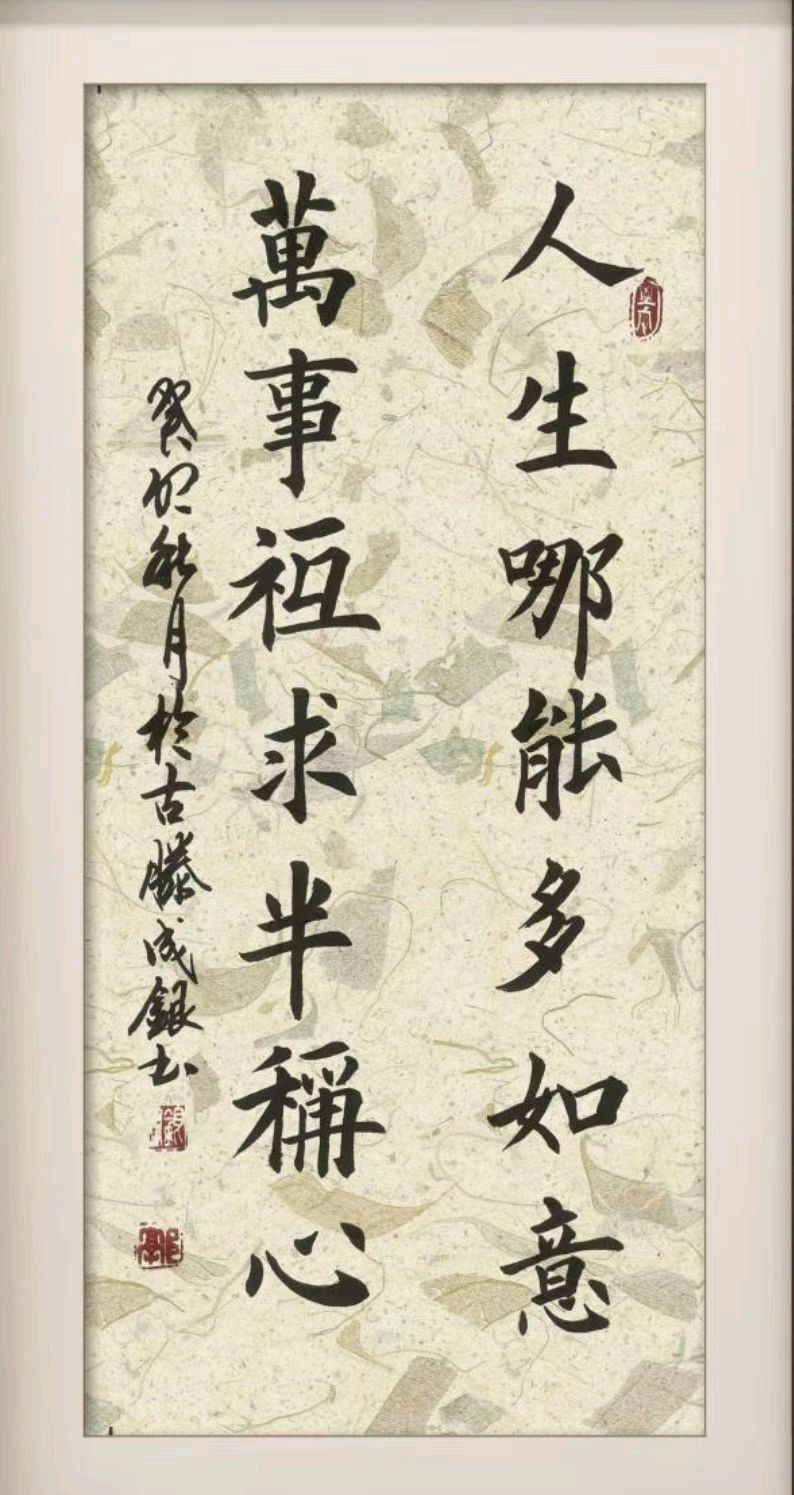 人生哪能多如意
萬事祗求半稱心
癸卯秋月於古滕成銀书